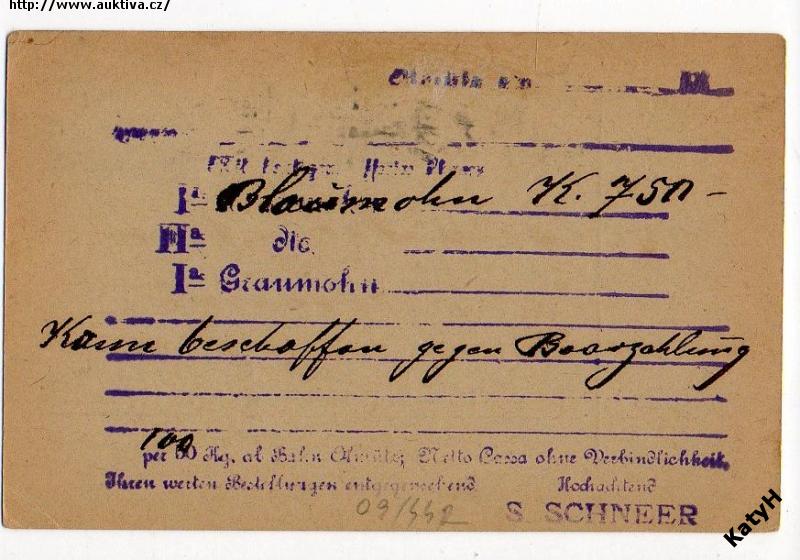 http://www.auktiva.cz/
Olmütz am
Iᵃ Blaumohn K. 750–
IIᵃ dto.
Iᵃ Graumohn
Kann beschaffen gegen Baarzahlung
100
per 50 Kg. ab Bahn Olmütz, Netto Cassa ohne Verbindlichkeit.
Ihren werten Bestellungen entgegensehend Hochachtend
09/442 S. SCHNEER
KatyH